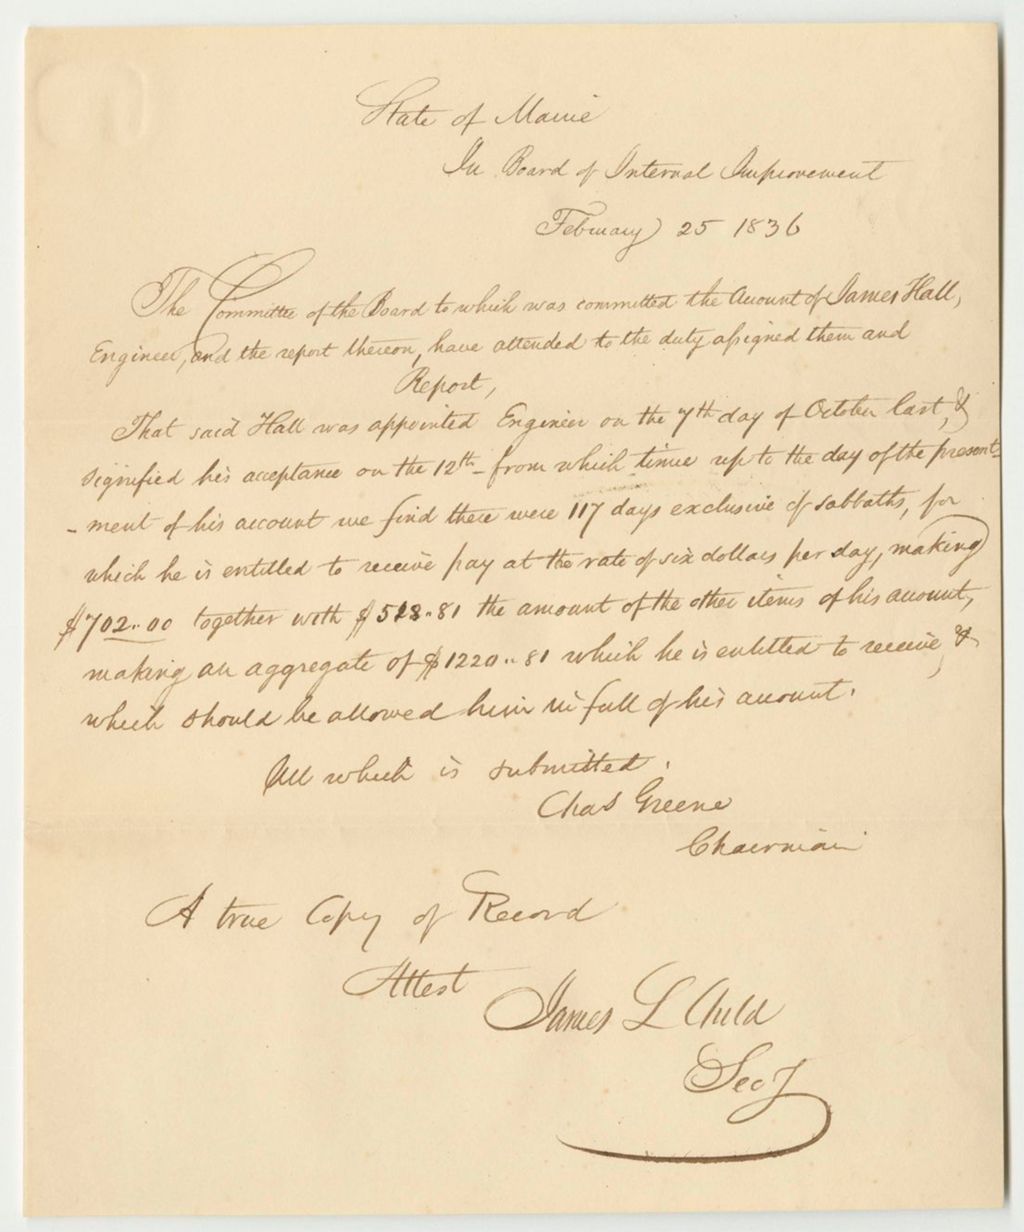 State of Maine
In Board of Internal Improvement
February 25 1836
The Committee of the Board to which was committed the Account of James Hall,
Engineer, and the report thereon, have attended to the duty assigned them and
Report,
That said Hall was appointed Engineer on the 7th day of October last, &
signified his acceptance on the 12th - from which time up to the day of the present-
-ment of his account we find there were 117 days exclusive of sabbaths, for
which he is entitled to receive pay at the rate of six dollars per day, making
$702..00 together with $518..81 the amount of the other items of his account,
making an aggregate of $1220..81 which he is entitled to receive, &
which should be allowed him in full of his account.
All which is submitted.
Chas Greene
Chairman
A true Copy of Record
Attest
James L Child
Secy